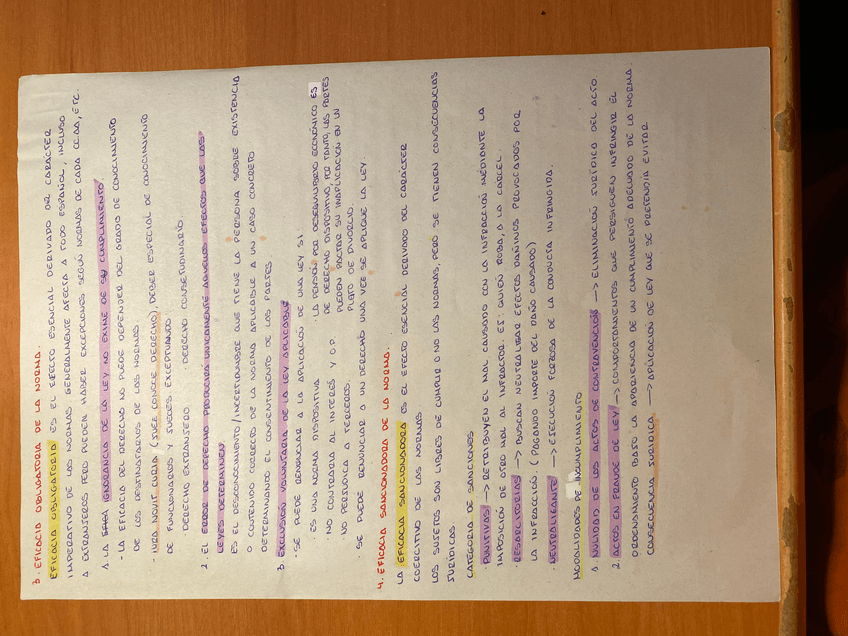 3. EFICACIA OBLIGATORIA DE LA NORMA.
EFICACIA OBLIGATORIA ES EL EFECTO ESENCIAL DERIVADO DEL CARÁCTER
IMPERATIVO DE LAS NORMAS GENERALMENTE AFECTA A TODO ESPAÑOL, INCLUSO
A EXTRANJEROS PERO PUEDEN HABER EXCEPCIONES SEGÚN NORMAS DE CADA CCAA, ETC.
1. LA IGNORANCIA DE LA LEY NO EXIME DE SU CUMPLIMIENTO.
- LA EFICACIA DEL DERECHO NO PUEDE DEPENDER DEL GRADO DE CONOCIMIENTO
DE LOS DESTINATARIOS DE LAS NORMAS
- IURA NOVIT CURIA (JUEZ CONOCE DERECHO), DEBER ESPECIAL DE CONOCIMIENTO
DE FUNCIONARIOS Y JUECES EXCEPTUANDO
DERECHO EXTRANJERO DERECHO CONSETUDINARIO
2. EL ERROR DE DERECHO PRODUCIRÁ ÚNICAMENTE AQUELLOS EFECTOS QUE LAS
LEYES DETERMINEN
ES EL DESCONOCIMIENTO/INCERTIDUMBRE QUE TIENE LA PERSONA SOBRE EXISTENCIA
O CONTENIDO CORRECTO DE LA NORMA APLICABLE A UN CASO CONCRETO
DETERMINANDO EL CONSENTIMIENTO DE LAS PARTES
3. EXCLUSIÓN VOLUNTARIA DE LA LEY APLICABLE
- SE PUEDE RENUNCIAR A LA APLICACIÓN DE UNA LEY SI
· ES UNA NORMA DISPOSITIVA · LA PENSIÓN POR DESEQUILIBRIO ECONÓMICO ES
· NO CONTRARIA AL INTERÉS Y O.P. DE DERECHO DISPOSITIVO, POR TANTO, LAS PARTES
· NO PERJUDICA A TERCEROS. PUEDEN PACTAR SU INAPLICACIÓN EN UN
PLEITO DE DIVORCIO.
- SE PUEDE RENUNCIAR A UN DERECHO UNA VEZ SE APLIQUE LA LEY
4. EFICACIA SANCIONADORA DE LA NORMA.
LA EFICACIA SANCIONADORA ES EL EFECTO ESENCIAL DERIVADO DEL CARÁCTER
COERCITIVO DE LAS NORMAS
LOS SUJETOS SON LIBRES DE CUMPLIR O NO LAS NORMAS, PERO SE TIENEN CONSECUENCIAS
JURÍDICAS
CATEGORÍA DE SANCIONES
· PUNITIVAS → RETRIBUYEN EL MAL CAUSADO CON LA INFRACCIÓN MEDIANTE LA
IMPOSICIÓN DE OTRO MAL AL INFRACTOR. EJ: QUIEN ROBA, A LA CARCEL.
· RESARCITORIAS → BUSCAN NEUTRALIZAR EFECTOS DAÑINOS PROVOCADOS POR
LA INFRACCIÓN. (PAGANDO IMPORTE DEL DAÑO CAUSADO)
· NEUTRALIZANTE → EJECUCIÓN FORZOSA DE LA CONDUCTA INFRINGIDA.
MODALIDADES DE INCUMPLIMIENTO
1. NULIDAD DE LOS ACTOS DE CONTRAVENCIÓN → ELIMINACIÓN JURÍDICA DEL ACTO
2. ACTOS EN FRAUDE DE LEY → COMPORTAMIENTOS QUE PERSIGUEN INFRINGIR EL
ORDENAMIENTO BAJO LA APARIENCIA DE UN CUMPLIMIENTO ADECUADO DE LA NORMA.
CONSECUENCIA JURIDICA → APLICACIÓN DE LEY QUE SE PRETENDÍA EVITAR